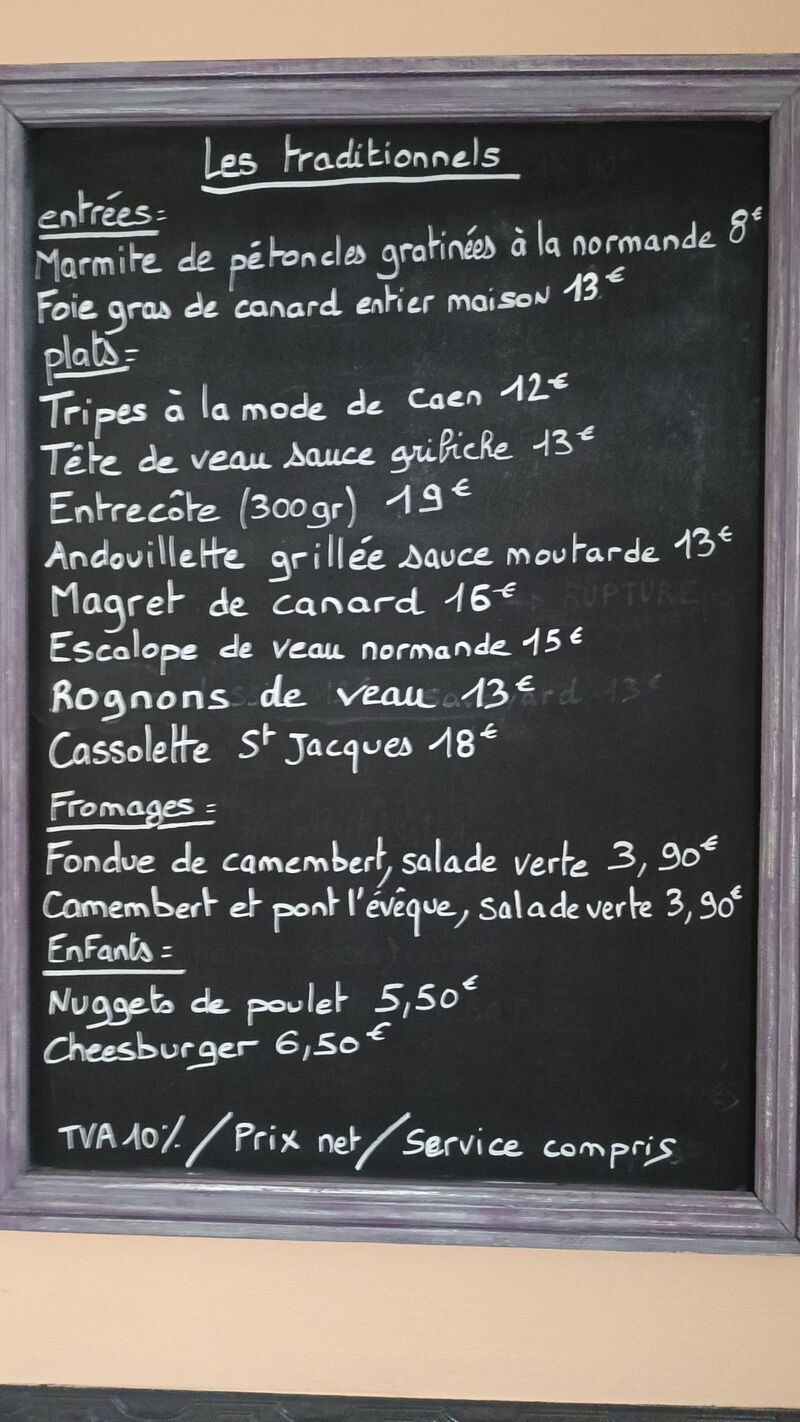 Les traditionnels
entrées=
Marmite de pétoncles gratinées à la normande 8€
Foie gras de canard entier maison 13€
plats=
Tripes à la mode de Caen 12€
Tête de veau sauce gribiche 13€
Entrecôte (300gr) 19€
Andouillette grillée sauce moutarde 13€
Magret de canard 16€
RUPTURE
Escalope de veau normande 15€
Rognons de veau 13€
Cassolette St Jacques 18€
Fromages=
Fondue de camembert, salade verte 3,90€
Camembert et pont l'évêque, salade verte 3,90€
Enfants=
Nuggets de poulet 5,50€
Cheesburger 6,50€
TVA 10% / Prix net / Service compris